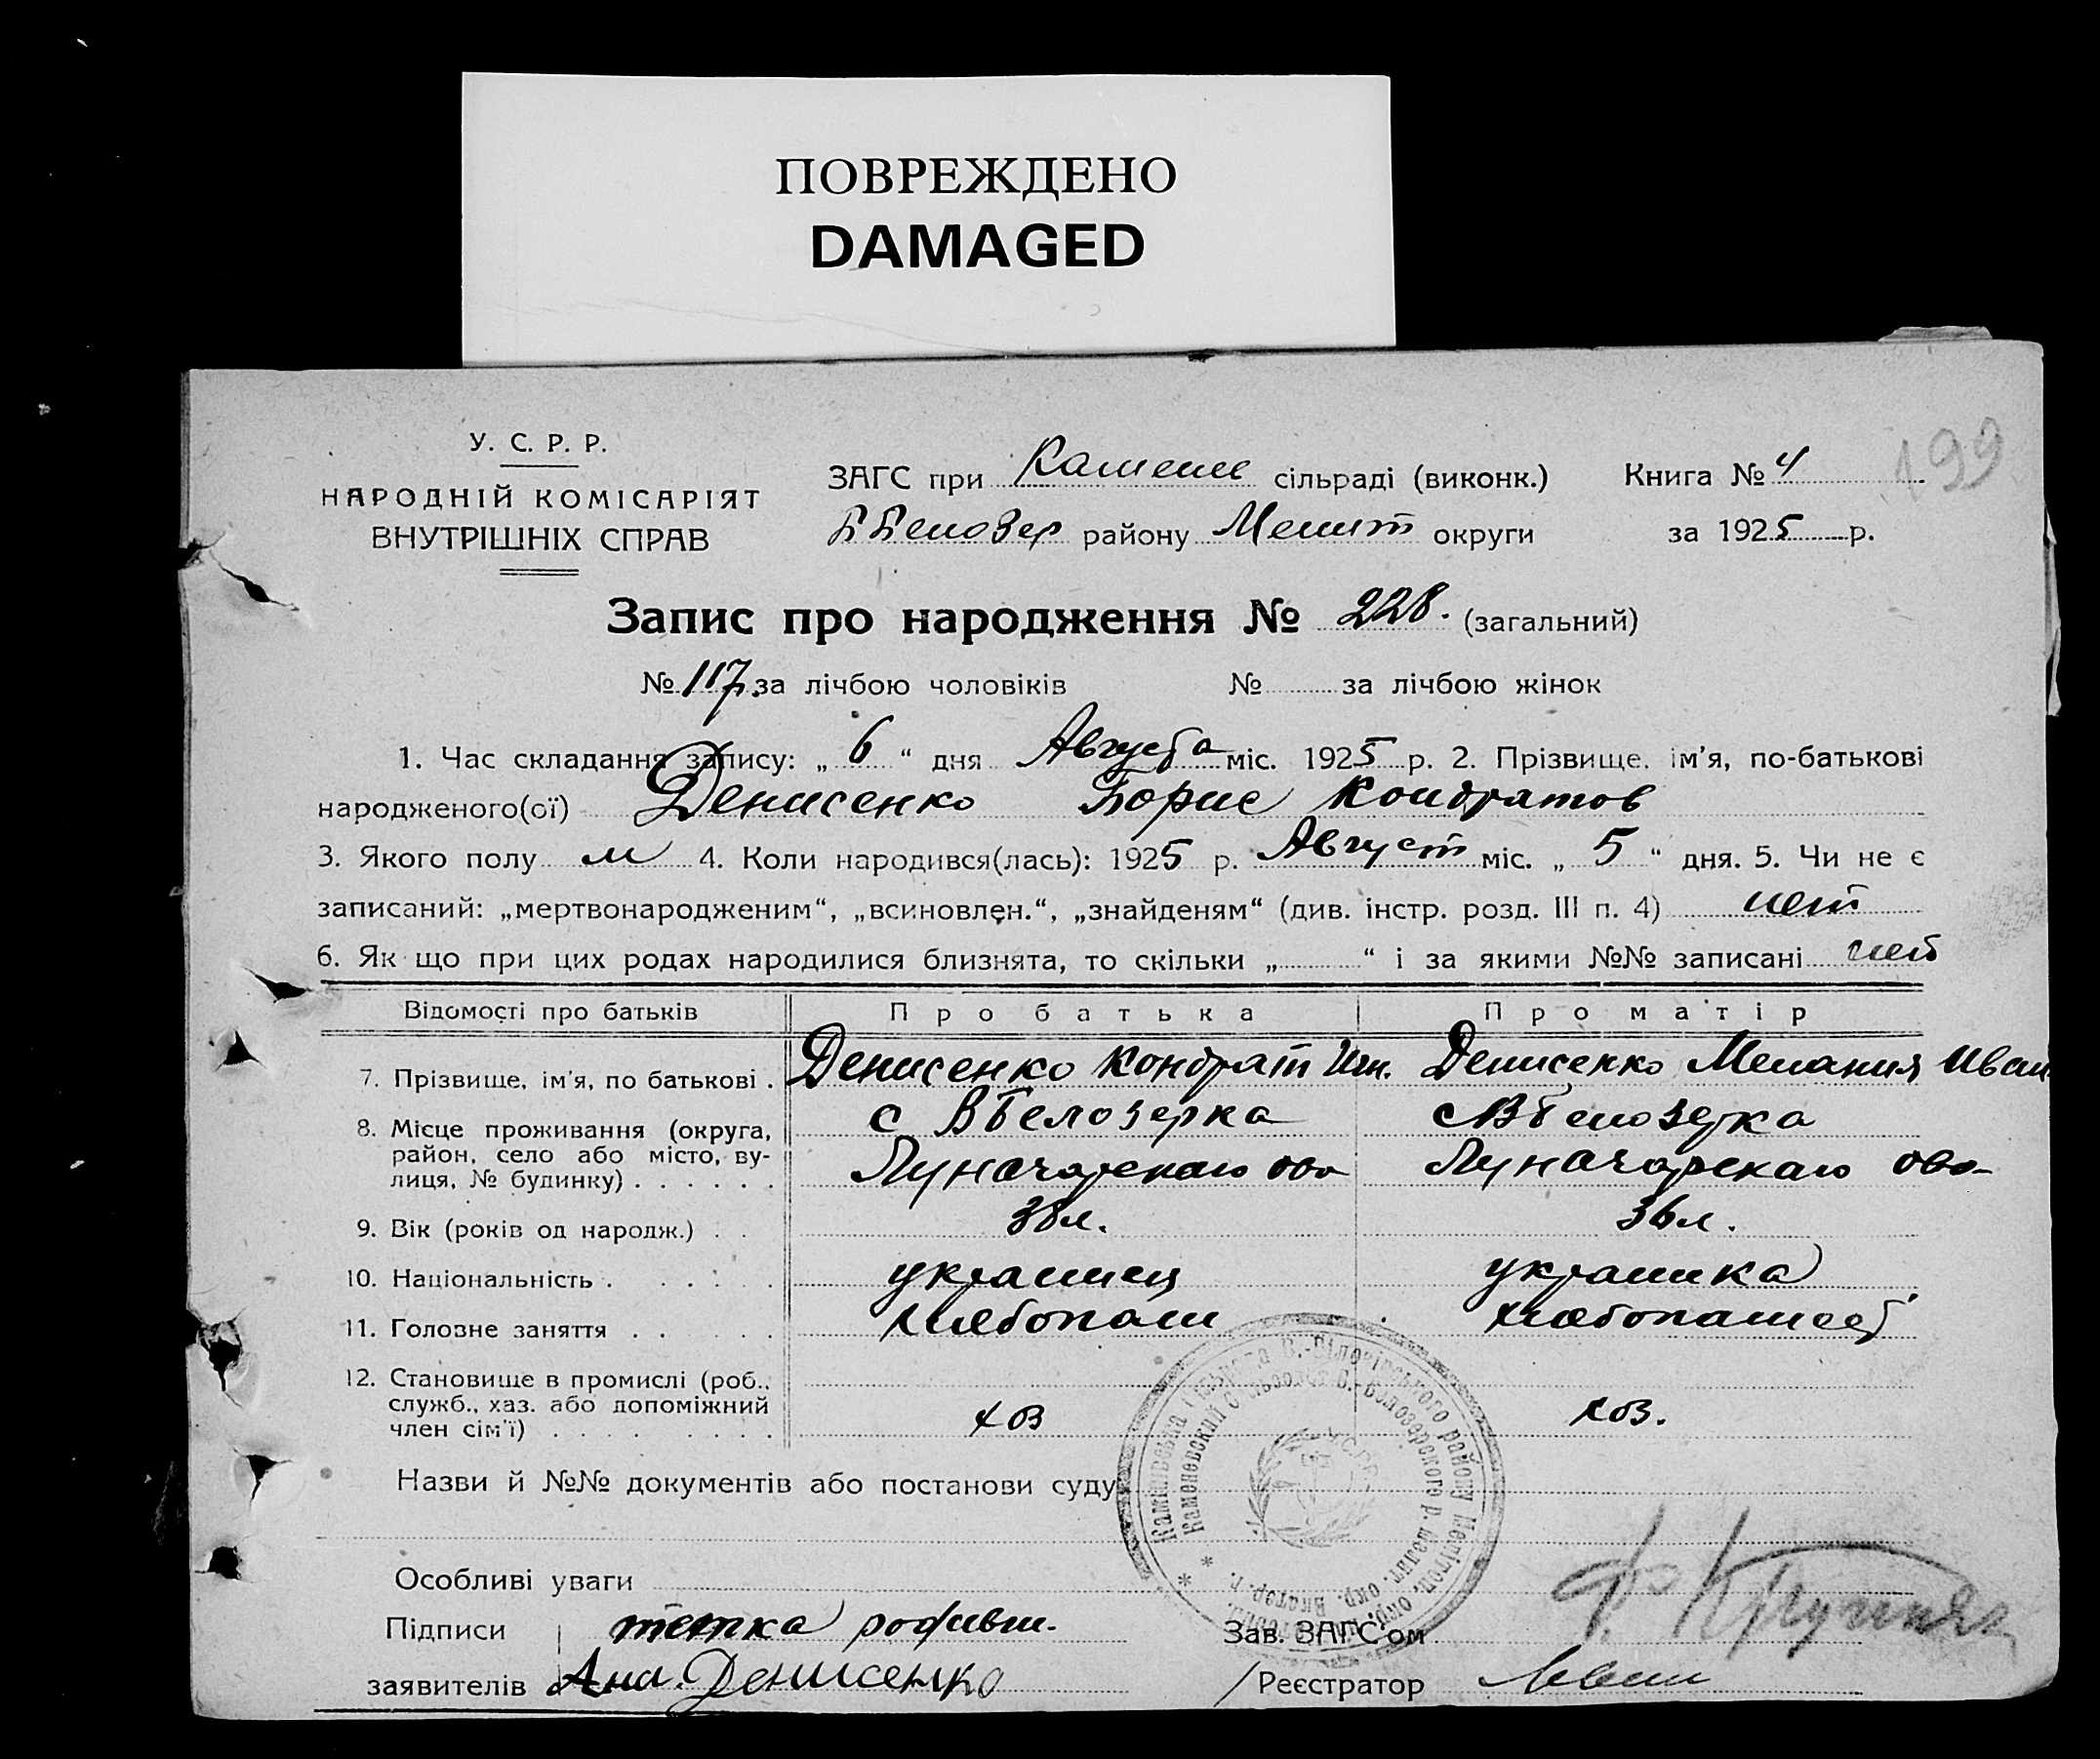 ПОВРЕЖДЕНО
DAMAGED
199
У. С. Р. Р.
НАРОДНІЙ КОМІСАРІЯТ
ВНУТРІШНІХ СПРАВ
ЗАГС при Каменс сільраді (виконк.) Книга № 4
Белозер району Мелит округи за 1925 р.
Запис про народження № 228. (загальний)
№ 117. за лічбою чоловіків № за лічбою жінок
1. Час складання запису: „ 6 “ дня Августа міс. 1925 р. 2. Прізвище, ім'я, по-батькові
народженого(ої) Денисенко Борис Кондратов
3. Якого полу м 4. Коли народився(лась): 1925 р. Август міс. „ 5 “ дня. 5. Чи не є
записаний: „мертвонародженим“, „всиновлен.“, „знайденям“ (див. інстр. розд. III п. 4) нет
6. Як що при цих родах народилися близнята, то скільки „ “ і за якими №№ записані нет
Відомості про батьків Про батька Про матір
7. Прізвище, ім'я, по батькові . Денисенко Кондрат Денисенко Мелания Иван
8. Місце проживання (округа, с ВБелозерка с ВБелозерка
район, село або місто, ву-
лиця, № будинку) . . . . . . Луначарскаго ова Луначарскаго ова
9. Вік (років од народж.) . . 38 л. 36 л.
10. Національність . . . . . украинец украинка
11. Головне заняття . . . . . хлебопаш хлебопашест
12. Становище в промислі (роб.,
служб., хаз. або допоміжний хоз хоз.
член сім'ї) . . . . . . . .
Назви й №№ документів або постанови суду
Камінівська сільрада В.-Білозірського району Мелітоп. окр.
Каменевский сельсовет В.-Белозерского р. Мелит. окр. Екатер. г.
У.С.Р.Р.
Особливі уваги
Підписи тетка родивш. Зав. ЗАГС'ом
заявителів Ана. Денисенко /Реєстратор